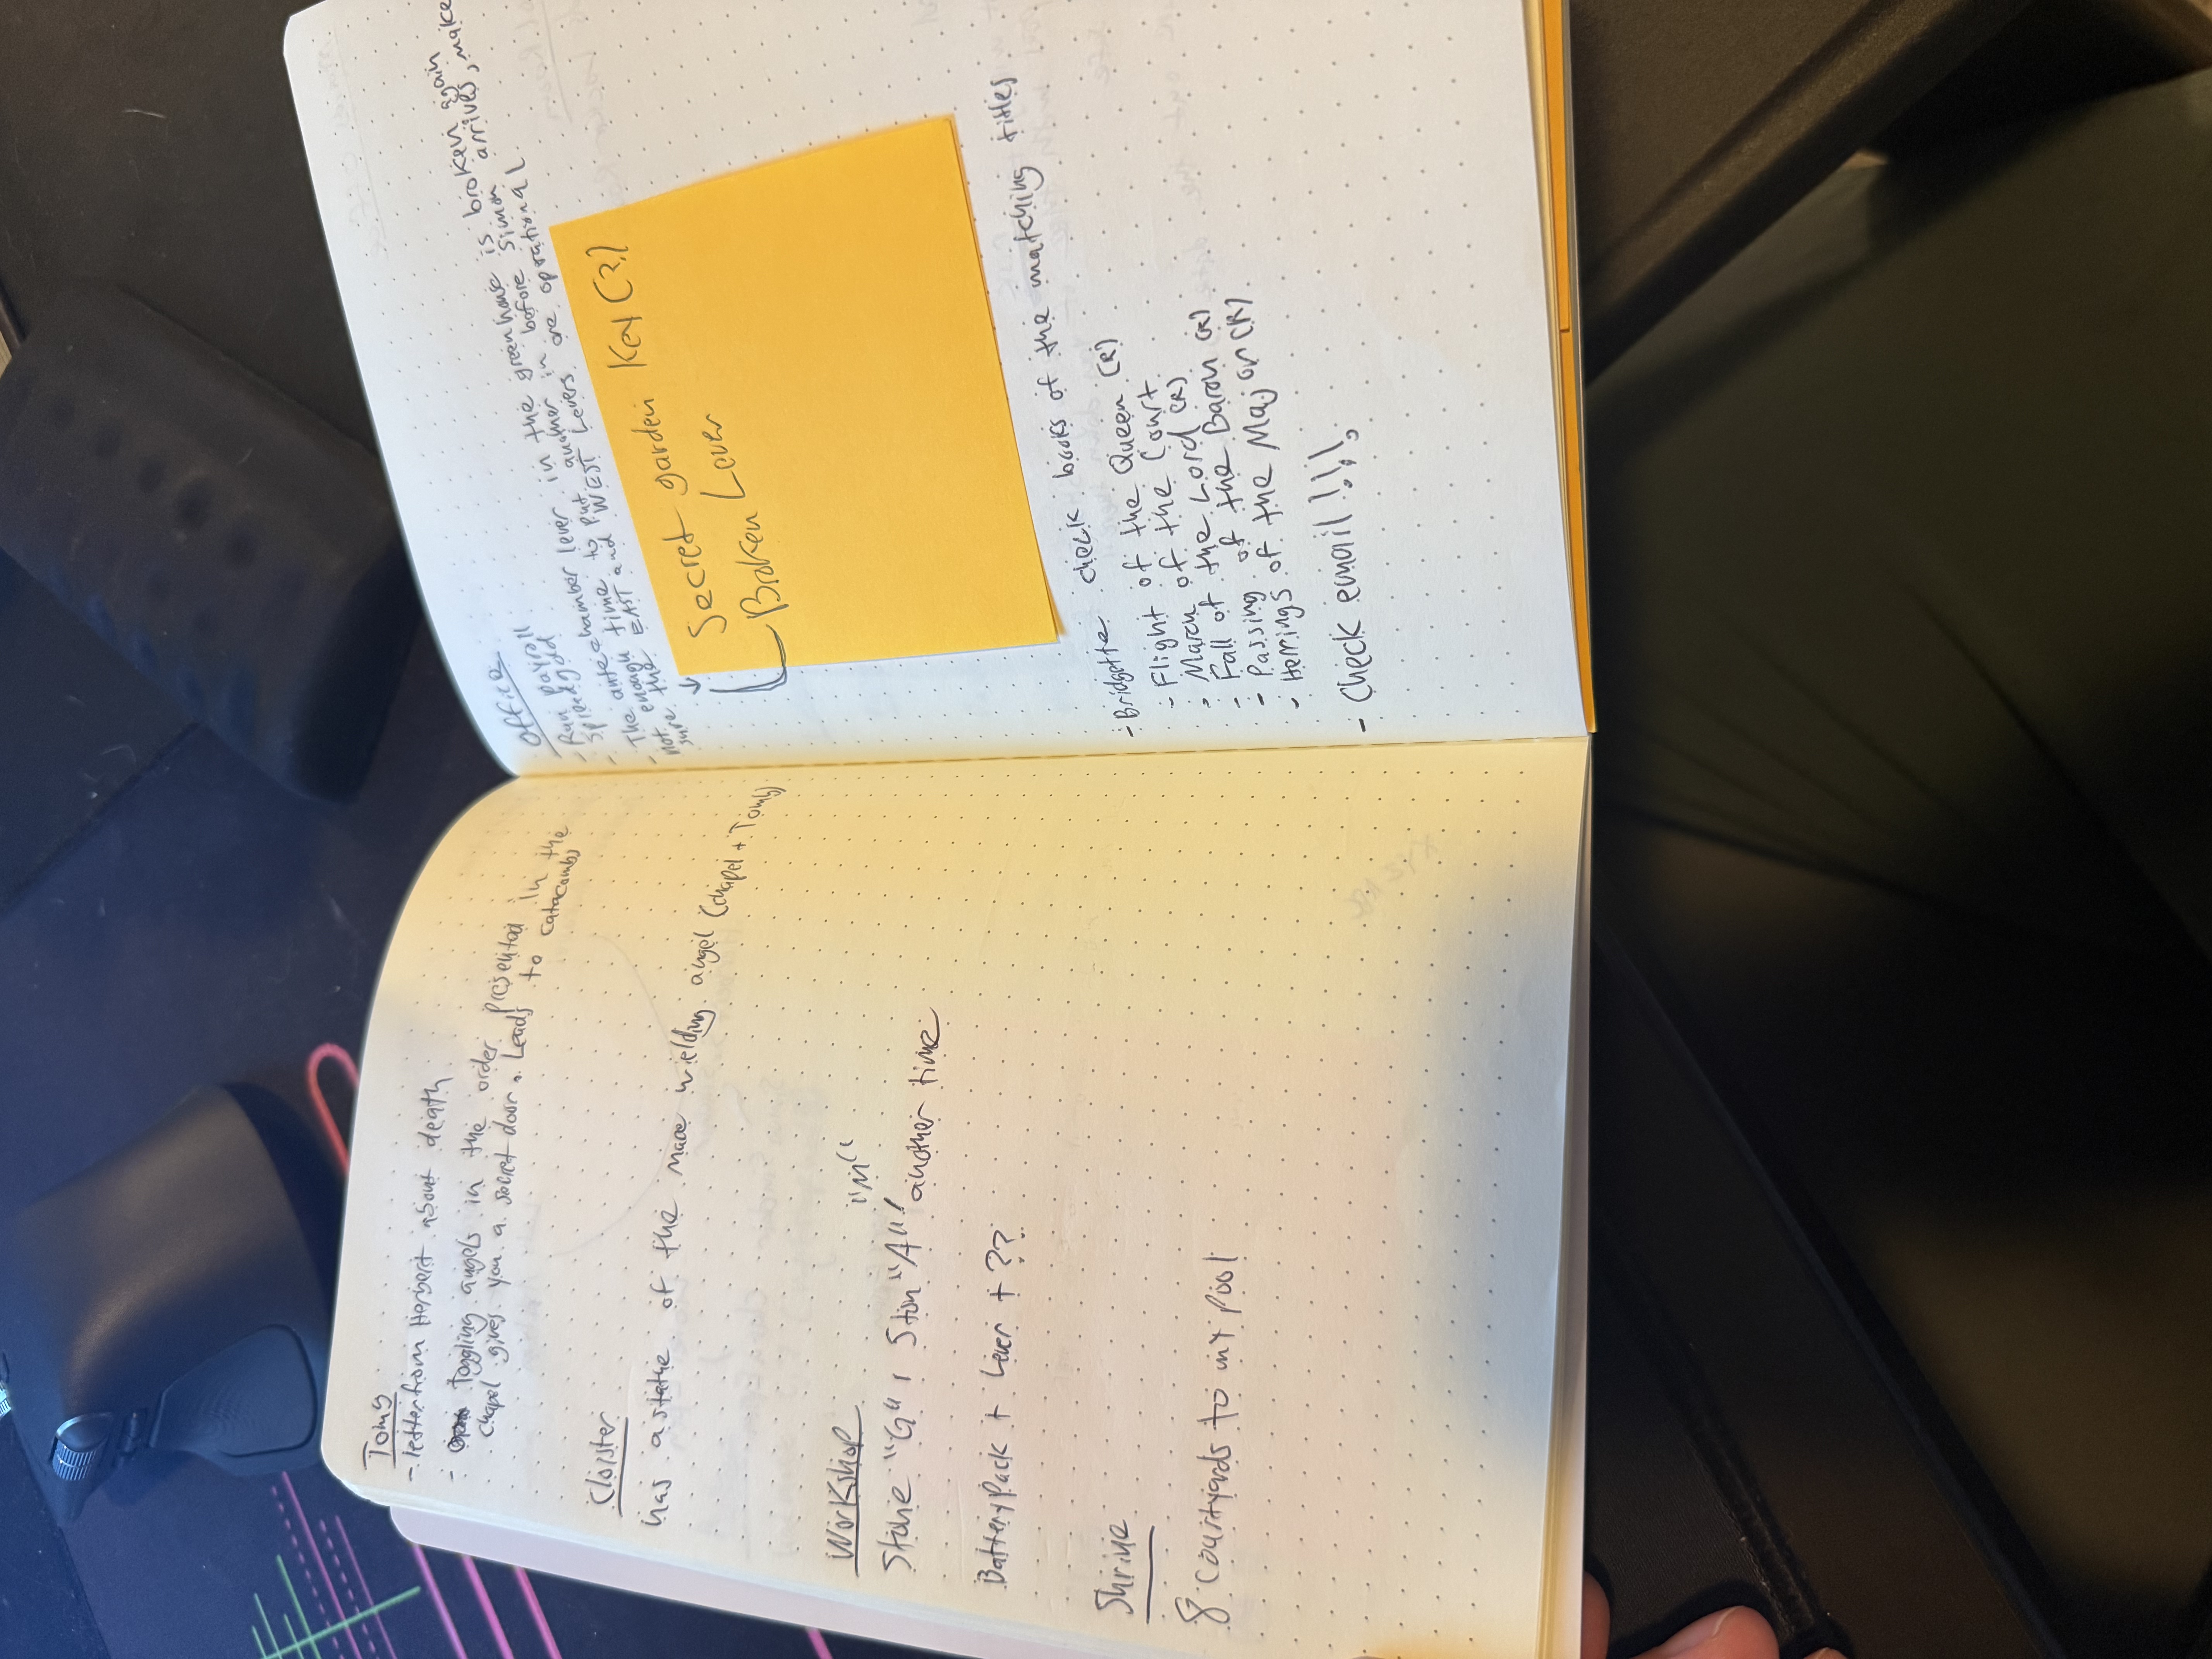 Tomb
- letter from Herbert about death
- Toggling angels in the order presented in the
chapel gives you a secret door. Leads to catacombs
Cloister
has a statue of the mace wielding angel (chapel + Tomb)
Workshop
"M"
Stone "G", Ston "A", another time
Battery Pack + Lever + ??
Shrine
8 courtyards to in my pool
Office
- Run payroll
- Spread gold
- The antechamber lever in the greenhouse is broken again
- not enough time to put another in before Simon arrives, make
sure the EAST and WEST Levers are oprational
Secret garden Key (?)
Broken Lever
- Bridgette check books of the matching titles
- Flight of the Queen (R)
- March of the Count
- Fall of the Lord (R)
- Passing of the Baron (R)
- Herrings of the Major (R)
- Check email !!!